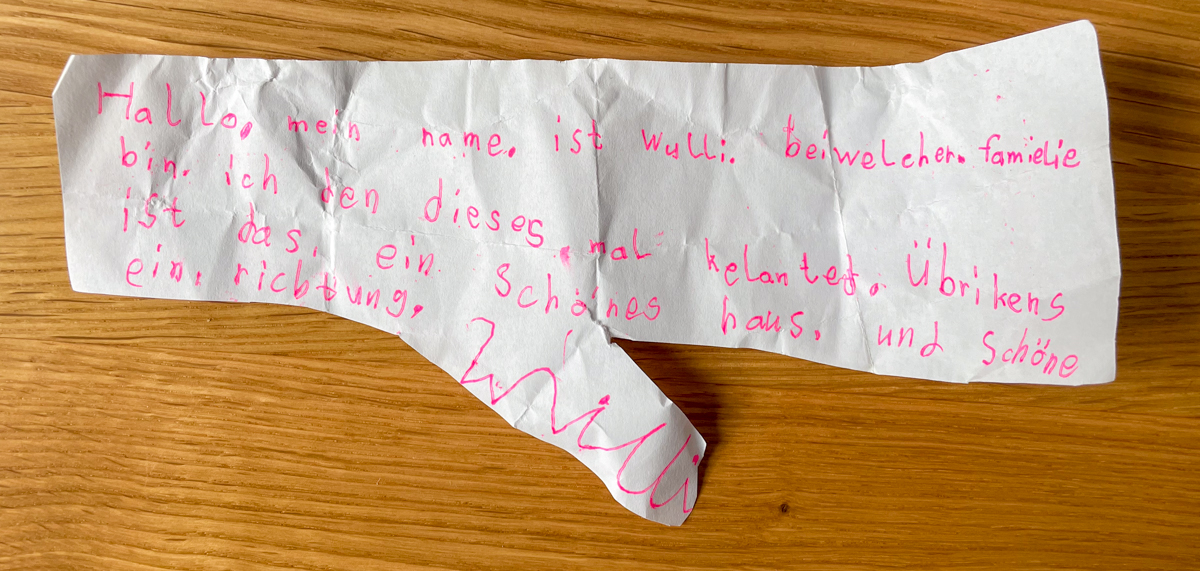 Hallo, mein name. ist wulli. bei welcher. famielie
bin. ich den dieses. mal kelantet. Übrikens
ist das. ein schönes haus. und schöne
ein. richtung.
Willi